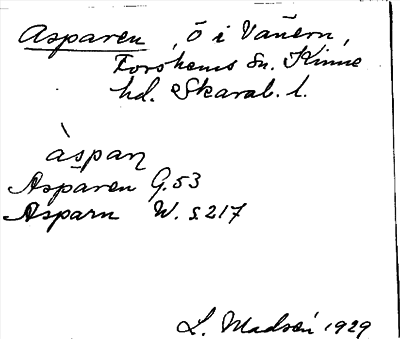 Asparen, ö i Vänern,
Forshems sn. Kinne
hd. Skarab. l.
àspaɳ
Asparen G. 53
Asparn W. s. 217
L. Madsén 1929